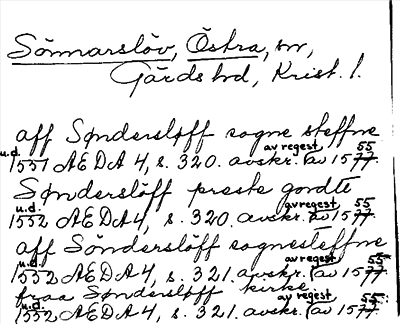 Sönnarslöv, Östra, sn,
Gärds hd, Krist. l.
aff Søndersløff sogne steffne
u.d. 1551 AEDA 4, s. 320. avskr. av regest av 1577 55
Søndersløff preste gordtt
u.d. 1552 AEDA 4, s. 320. avskr. av regest av 1577 55
aff Söndersløff sognesteffne
u.d. 1552 AEDA 4, s. 321. avskr. av regest av 1577 55
fraa Søndersløff kirke
u.d. 1552 AEDA 4, s. 321. avskr. av regest av 1577 55